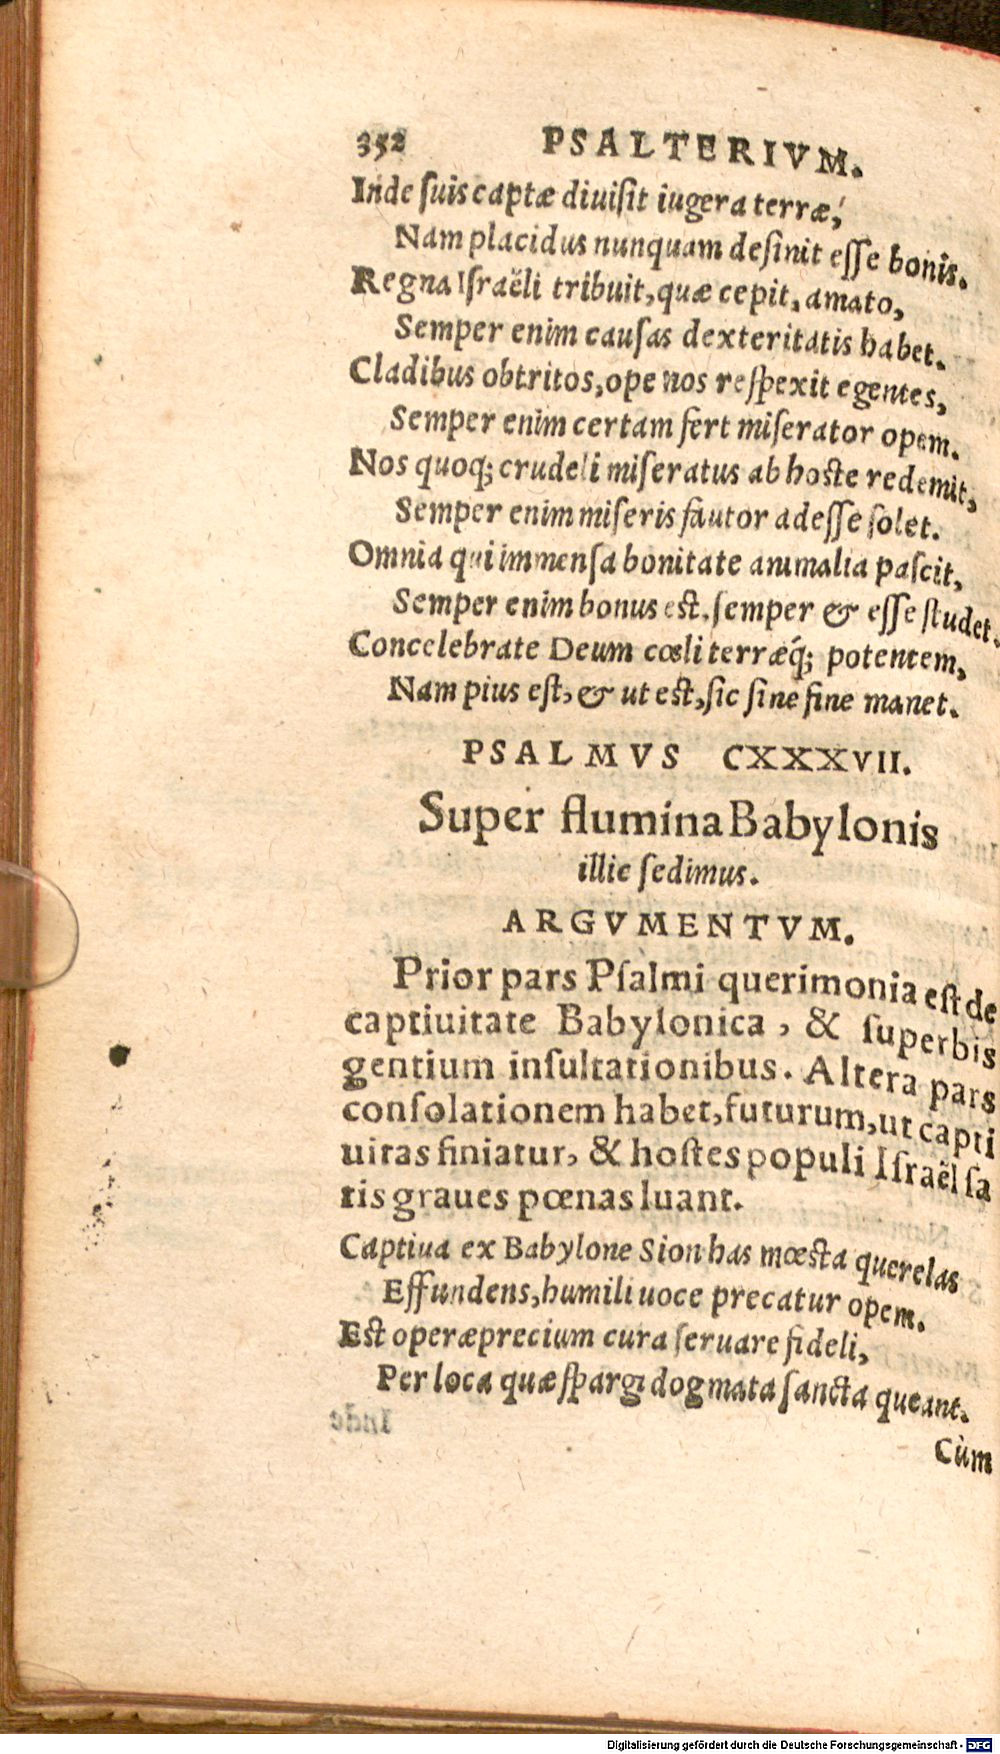 352 PSALTERIVM.
Inde ſuis captæ diuiſit iugera terræ,
Nam placidus nunquam deſinit eſſe bonis.
Regna Iſraëli tribuit, quæ cepit, amato,
Semper enim cauſas dexteritatis habet.
Cladibus obtritos, ope nos reſpexit egentes,
Semper enim certam fert miſerator opem.
Nos quoq; crudeli miſeratus ab hoste redemit,
Semper enim miſeris fautor adeſſe ſolet.
Omnia qui immenſa bonitate animalia paſcit,
Semper enim bonus est, ſemper & eſſe ſtudet.
Concelebrate Deum cœli terræq́; potentem,
Nam pius eſt, & ut est, ſic ſine fine manet.
PSALMVS CXXXVII.
Super flumina Babylonis
illic ſedimus.
ARGVMENTVM.
Prior pars Pſalmi querimonia eſt de
captiuitate Babylonica, & ſuperbis
gentium inſultationibus. Altera pars
conſolationem habet, futurum, ut capti
uitas finiatur, & hoſtes populi Iſraël ſa
tis graues pœnas luant.
Captiua ex Babylone Sion has mœsta querelas
Effundens, humili uoce precatur opem.
Est operæprecium cura ſeruare fideli,
Per loca quæ ſpargi dogmata ſancta queant.
Cùm
Digitalisierung gefördert durch die Deutsche Forschungsgemeinschaft - DFG